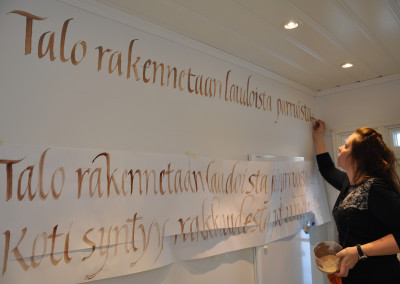 Talo rakennetaan laudoista parruista
Talo rakennetaan laudoista parruista
Koti syntyy rakkaudesta